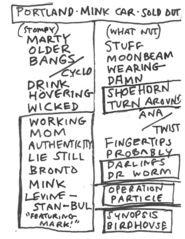 PORTLAND · MINK CAR · SOLD OUT
(STOMPY)
MARTY
OLDER
BANGS
/CYCLO
DRINK
HOVERING
WICKED
WORKING
MOM
AUTHENTICITY
LIE STILL
BRONTO
MINK
LEVINE-
STAN-BUL
"FEATURING
MARK!"
(WHAT NUT)
STUFF
MOONBEAM
WEARING-
DAMN
SHOEHORN
TURN AROUND
ANA/
TWIST
FINGERTIPS
PROBABLY
DARLINGS
DR WORM
OPERATION
PARTICLE
SYNOPSIS
BIRDHOUSE